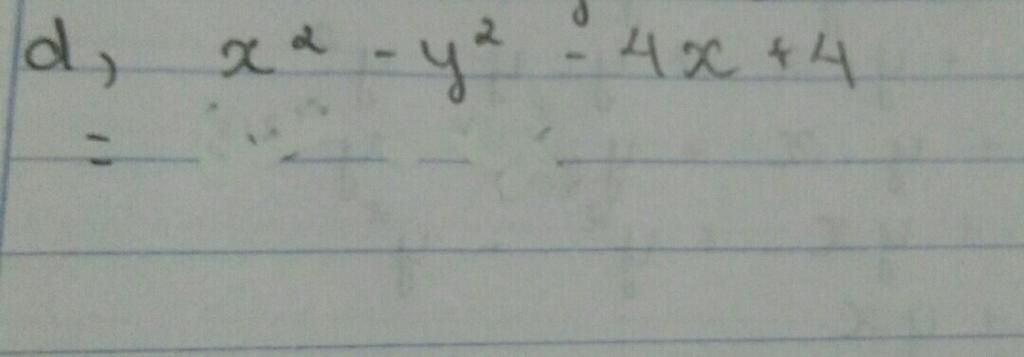 d, x² - y² - 4x + 4
=